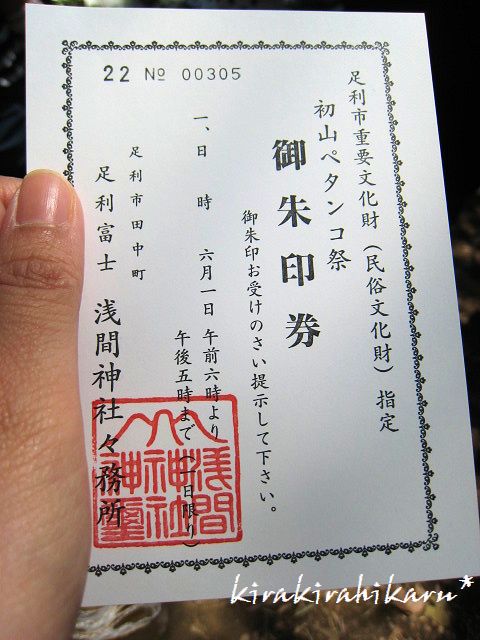 22 № 00305
足利市重要文化財（民俗文化財）指定
初山ペタンコ祭
御朱印券
御朱印お受けのさい提示して下さい。
一、日時 六月一日 午前六時より
午後五時まで（一日限り）
足利市田中町
足利富士 浅間神社々務所
浅間
神社
神璽
kirakirahikaru*